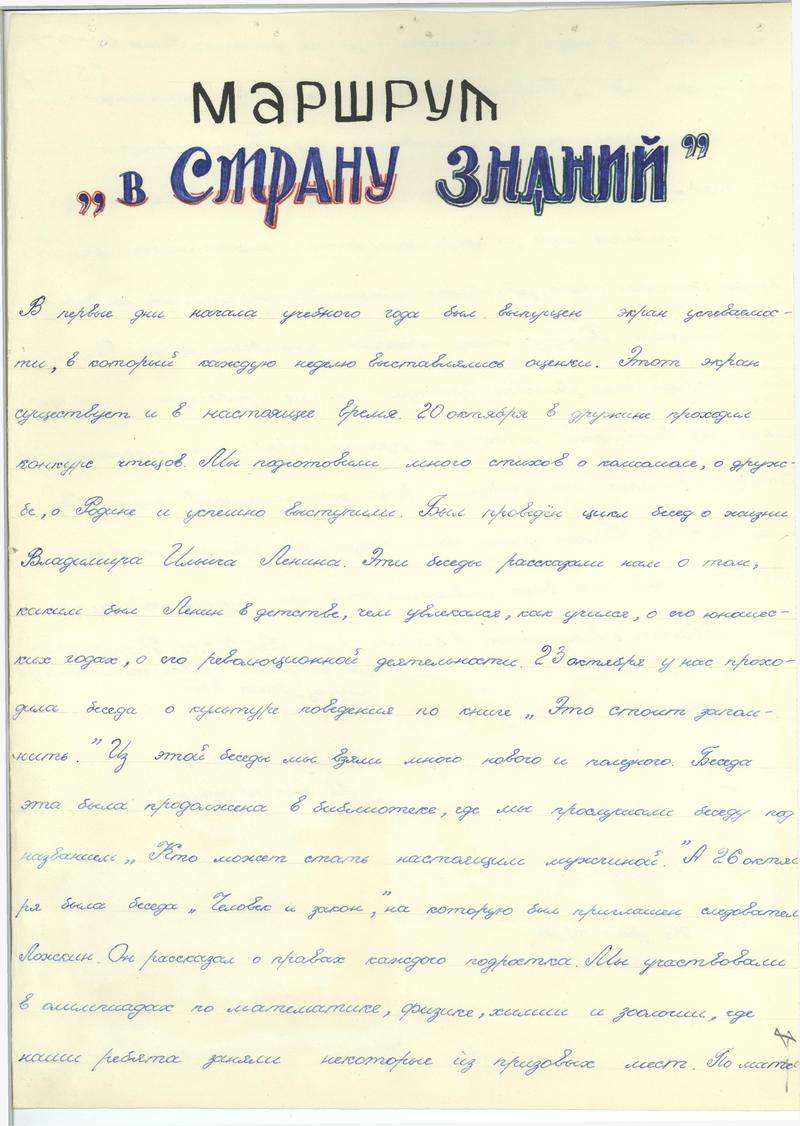 МАРШРУТ
„в СТРАНУ ЗНАНИЙ”
В первые дни начала учебного года был выпущен экран успеваемос-
ти, в который каждую неделю выставлялись оценки. Этот экран
существует и в настоящее время. 20 октября в дружине проходил
конкурс чтецов. Мы подготовили много стихов о комсомоле, о друж-
бе, о Родине и успешно выступили. Был проведён цикл бесед о жизни
Владимира Ильича Ленина. Эти беседы рассказали нам о том,
каким был Ленин в детстве, чем увлекался, как учился, о его юношес-
ких годах, о его революционной деятельности. 23 октября у нас прохо-
дила беседа о культуре поведения по книге „Это стоит запом-
нить.” Из этой беседы мы взяли много нового и полезного. Беседа
эта была продолжена в библиотеке, где мы прослушали беседу под
названием „Кто может стать настоящим мужчиной.” А 26 октяб
ря была беседа „Человек и закон”, на которую был приглашен следовател
Ложкин. Он рассказал о правах каждого подростка. Мы участвовали
в олимпиадах по математике, физике, химии и зоологии, где
наши ребята заняли некоторые из призовых мест. По мате
4